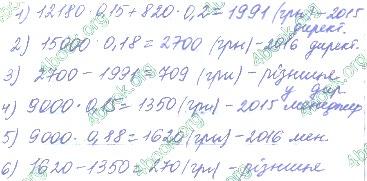 1) 12180 · 0,15 + 820 · 0,2 = 1991 (грн) – 2015 
директ.
2) 15000 · 0,18 = 2700 (грн) – 2016 директ.
3) 2700 – 1991 = 709 (грн) – різниця
у дир.
4) 9000 · 0,15 = 1350 (грн) – 2015 менеджер
5) 9000 · 0,18 = 1620 (грн) – 2016 мен.
6) 1620 – 1350 = 270 (грн) – різниця